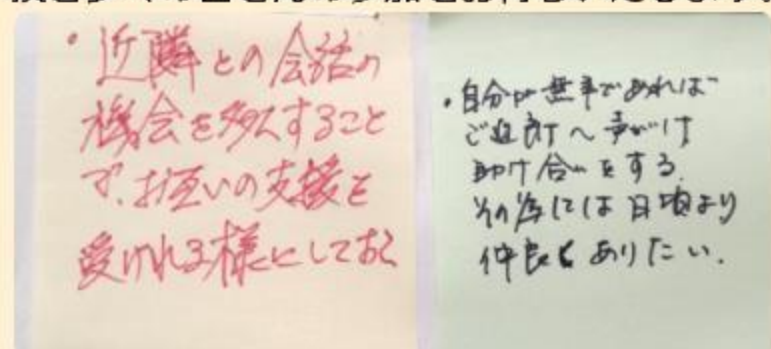 ・近隣との会話の
機会を多くすること
で、お互いの支援を
受けれる様にしておく
・自分が無事であれば
ご近所へ声がけ
助け合いをする。
その為には日頃より
仲良くありたい.